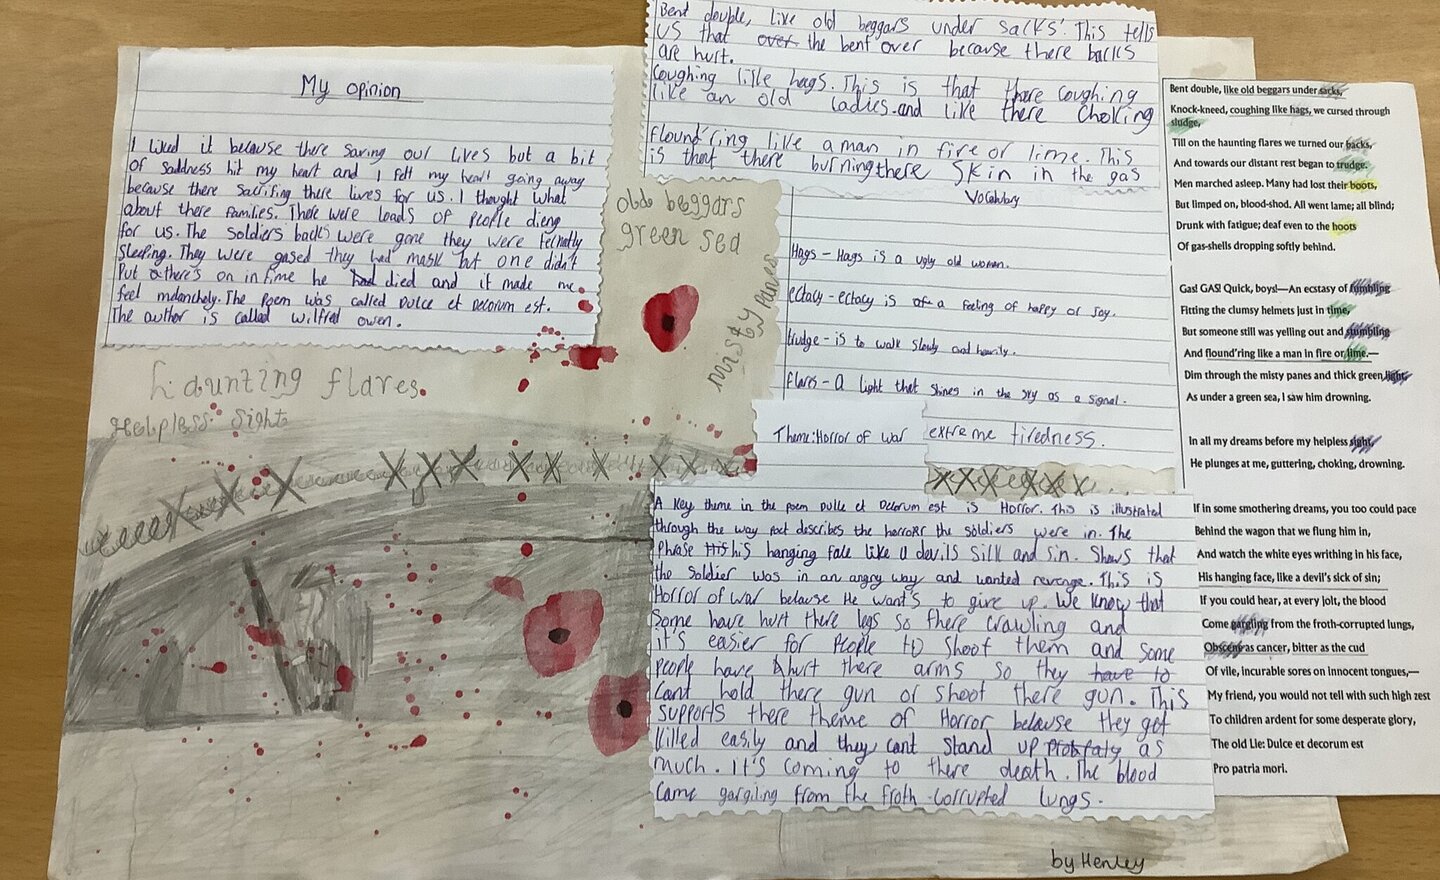 My opinion
I liked it because there saving our lives but a bit
of saddness hit my heart and I felt my heart going away
because there sacrifing there lives for us. I thought what
about there families. There were loads of people dieng
for us. The soldiers backs were gone they were
sleeping. They were gased they had mask but one didn't
Put there's on in time he had died and it made me
feel melancholy. The poem was called Dulce et Decorum est.
The author is called wilfred owen.
Bent double, like old beggars under sacks' This tells
us that over the bent over because there backs
are hurt.
Coughing like hags. This is that there coughing
like an old ladies. and like there choking
flound'ring like a man in fire or lime. This
is that there burning there skin in the gas
olde beggars
green sea
misty panes
haunting flares.
Helpless sight
Vocabulary
Hags - Hags is a ugly old woman.
ectacy - ectacy is of a feeling of happy or joy.
trudge - is to walk slowly and heavily.
flares - A light that shines in the sky as a signal.
Theme: Horror of war
extreme tiredness.
A key theme in the poem Dulce et Decorum est is Horror. This is illustrated
through the way poet describes the horrors the soldiers were in. The
phrase His his hanging face like a devils silk and sin. Shows that
the soldier was in an angry way and wanted revenge. This is
Horror of war because He want's to give up. We know that
Some have hurt there legs so there crawling and
it's easier for people to shoot them and some
people have hurt there arms so they have to
cant hold there gun or shoot there gun. This
supports there theme of Horror because they get
killed easily and they cant stand up as
much. It's coming to there death. The blood
came gargiling from the froth-corrupted lungs.
by Henley
Bent double, like old beggars under sacks,
Knock-kneed, coughing like hags, we cursed through
sludge,
Till on the haunting flares we turned our backs,
And towards our distant rest began to trudge.
Men marched asleep. Many had lost their boots,
But limped on, blood-shod. All went lame; all blind;
Drunk with fatigue; deaf even to the hoots
Of gas-shells dropping softly behind.
Gas! GAS! Quick, boys!—An ecstasy of fumbling
Fitting the clumsy helmets just in time,
But someone still was yelling out and stumbling
And flound'ring like a man in fire or lime.—
Dim through the misty panes and thick green light,
As under a green sea, I saw him drowning.
In all my dreams before my helpless sight,
He plunges at me, guttering, choking, drowning.
If in some smothering dreams, you too could pace
Behind the wagon that we flung him in,
And watch the white eyes writhing in his face,
His hanging face, like a devil's sick of sin;
If you could hear, at every jolt, the blood
Come gargling from the froth-corrupted lungs,
Obscene as cancer, bitter as the cud
Of vile, incurable sores on innocent tongues,—
My friend, you would not tell with such high zest
To children ardent for some desperate glory,
The old Lie: Dulce et decorum est
Pro patria mori.